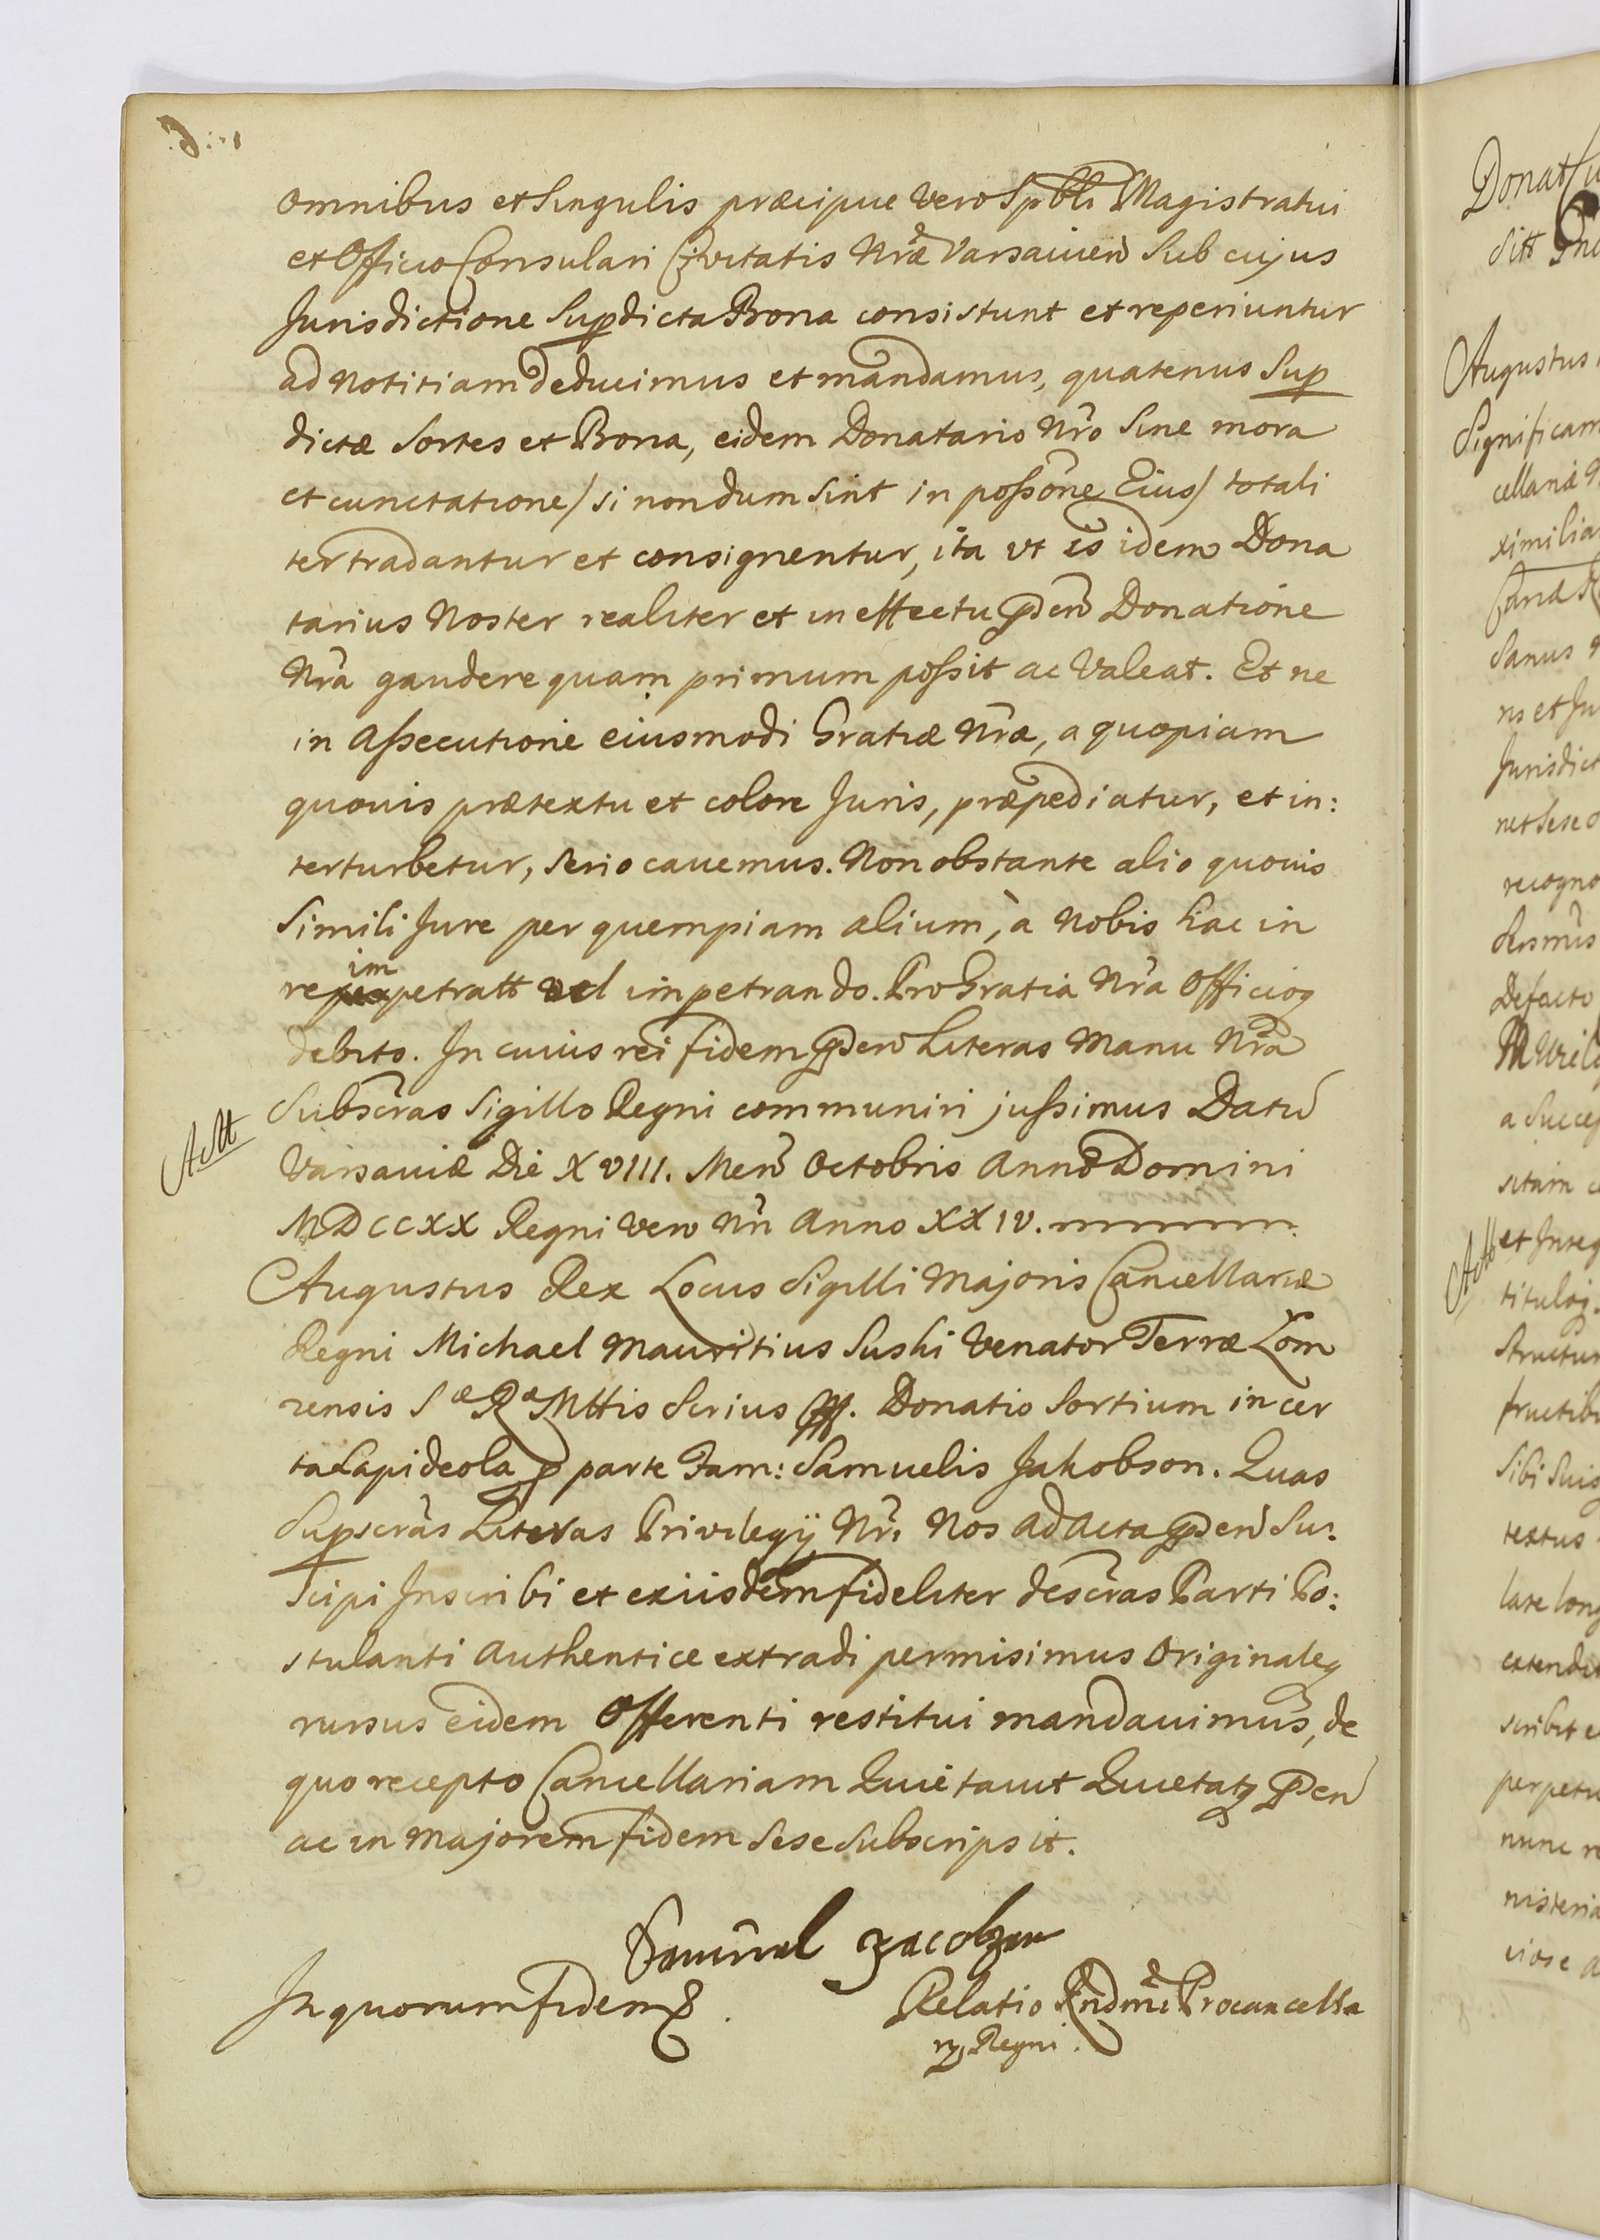 omnibus et Singulis præcipue vero Spbli Magistratui
et Officio Consulari Civitatis Nræ Varsavien Sub cujus
Jurisdictione Supdicta Bona consistunt et reperiuntur
ad Notitiam deducimus et mandamus, quatenus Sup
dictæ Sortes et Bona, eidem Donatario Nro Sine mora
et cunctatione /si nondum sint in possone Eius/ totali
ter tradantur et consignentur, ita ut is idem Dona
tarius Noster realiter et in effectu pden Donatione
Nra gaudere quam primum possit ac Valeat. Et ne
in Assecutione eiusmodi Gratiæ Nræ, a quopiam
quovis prætextu et colore Juris, præpediatur, et in:
terturbetur, serio cavemus. Non obstante alio quovis
Simili Jure per quempiam alium, à Nobis hac in
re impetratt vel impetrando. Pro Gratia Nra Officioq
debito. In cuius rei fidem pden Literas Manu Nra
Subscras Sigillo Regni communiri jussimus Datu
Actt
Varsaviæ Die XVIII. Men Octobris Anno Domini
MDCCXX Regni vero Nri Anno XXIV.
Augustus Rex Locus Sigilli Majoris Cancellariæ
Regni Michael Mauritius Suski Venator Terræ Lom
zensis Sæ Ræ Mttis Scrius. Donatio Sortium in cer
ta Lapideola p parte Fam: Samuelis Jakobson. Quas
Supscras Literas Privilegij Nri Nos ad Acta pden Su:
scipi Inscribi et exiisdem fideliter descras Parti Po:
stulanti Authentice extradi permisimus Originaleq
rursus eidem Offerenti restitui mandavimus, de
quo recepto Cancellariam Quietavit Quietatq pden
ac in Majorem fidem Sese Subscripsit.
Samuel Jacobzon
In quorum fidem
Relatio Rndmi Procancella
rij Regni.
Donat
Augustus
Significam
cellariæ
ximilia
Sanus
ns et Ju
Jurisdict
net Sese
recogno
Defacto
a Succes
et Integ
tituloq
Structur
fructib
Sibi Suis
textus
late long
extendit
scribit e
perpetu
nunc re
nisteria